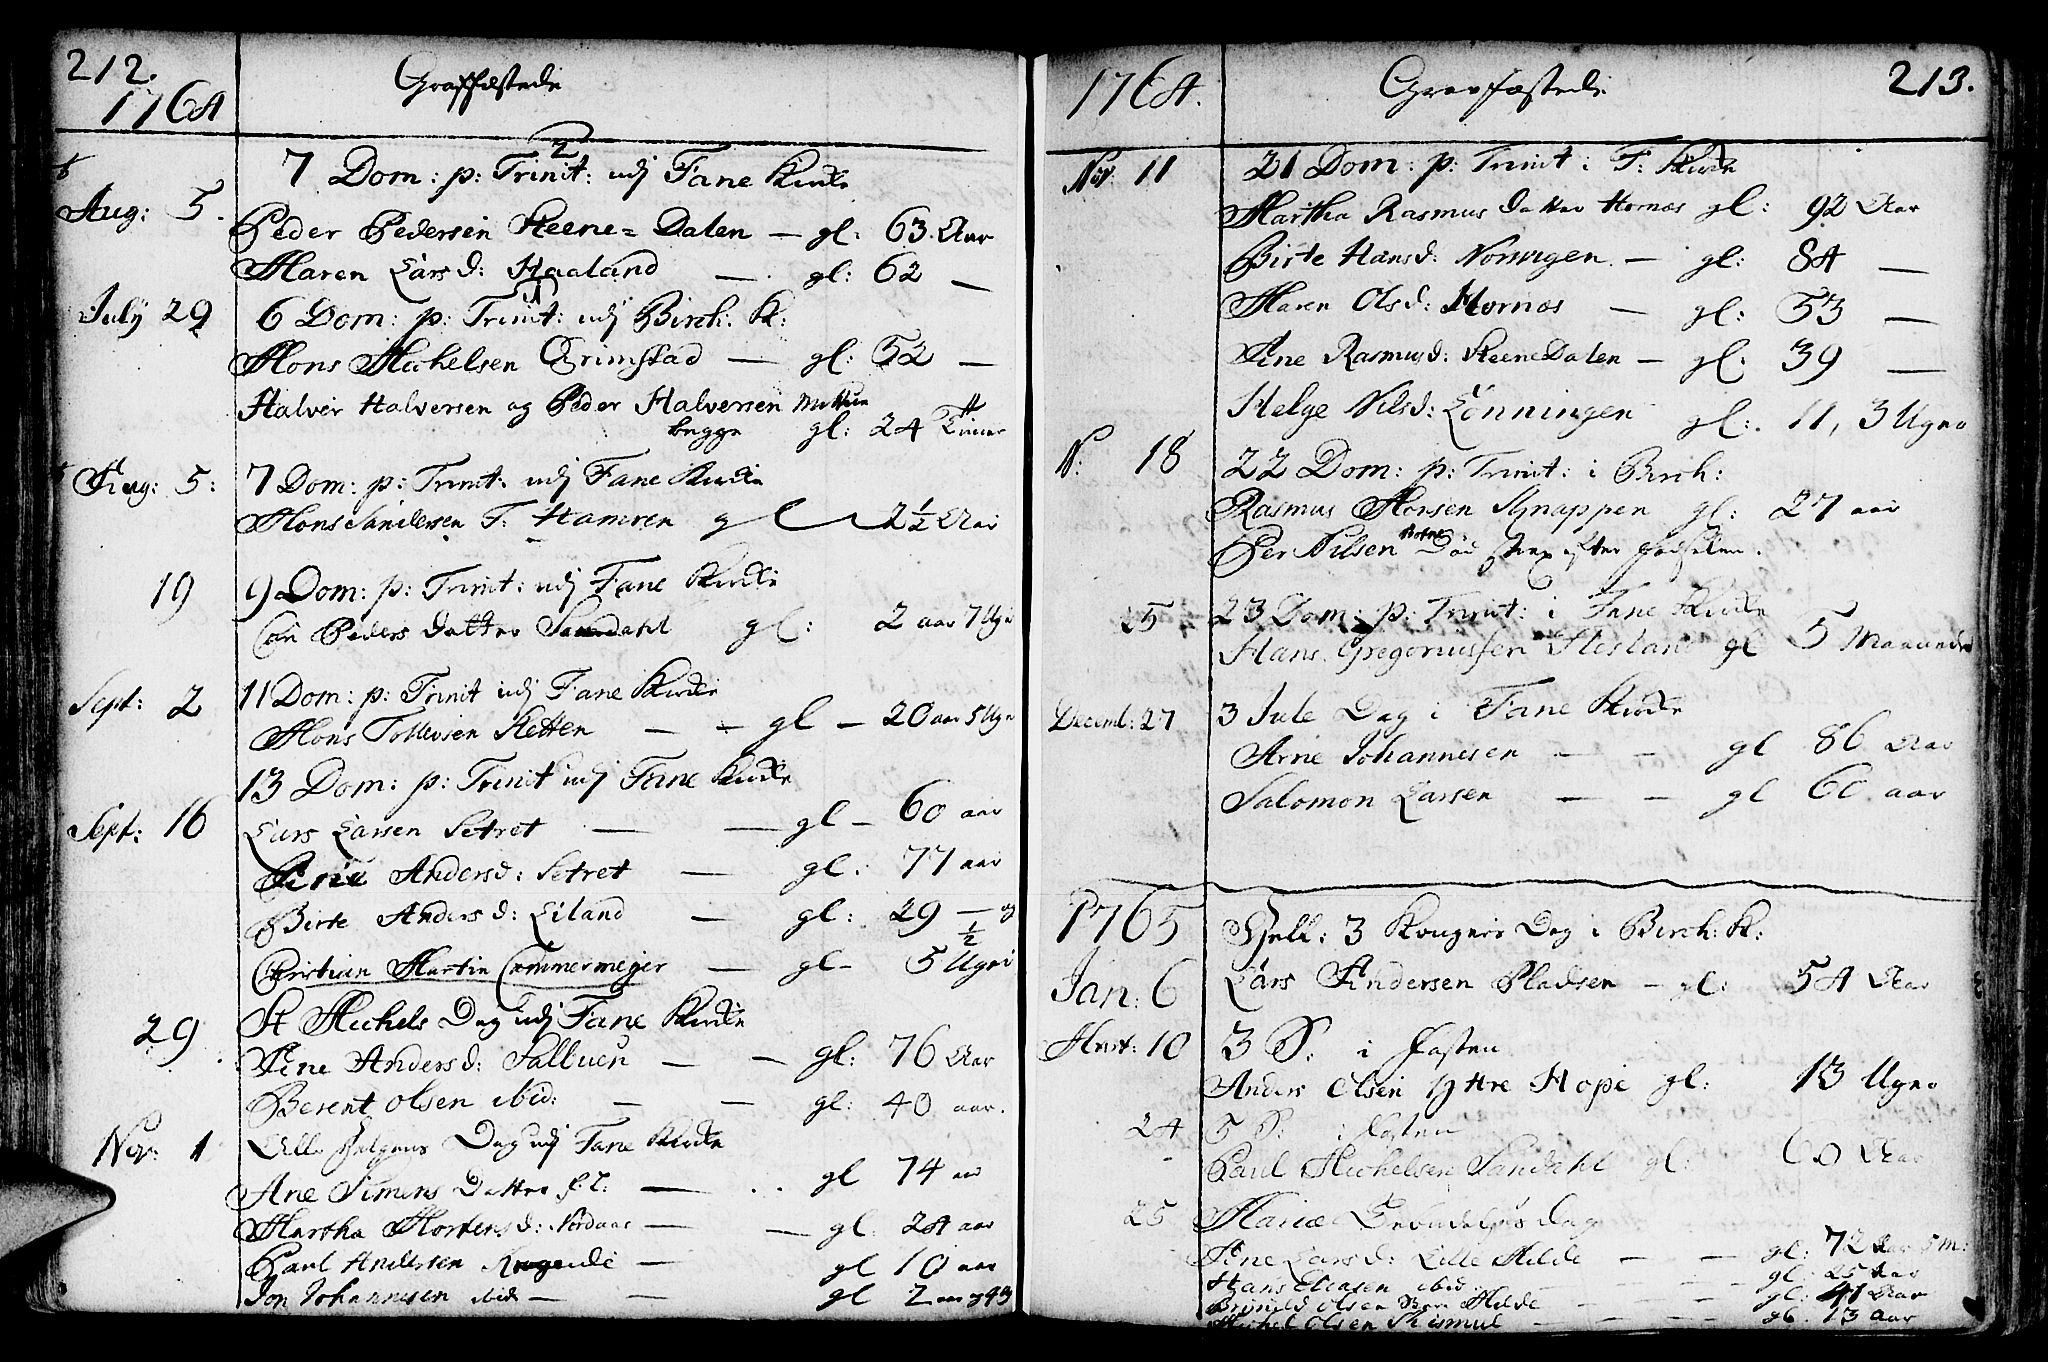 212.
1764
Graffæstede
2
Aug: 5. 7 Dom: p: Trinit: udj Fane Kirke
Peder Pedersen Steene=Dalen — gl: 63. Aar
Maren Lars d: Haaland — gl: 62 —
1
July 29 6 Dom: p: Trinit: udj Birch: K:
Mons Michelsen Grimstad — gl: 52 —
Halver Halversen og Peder Halversen
begge gl: 24 Timer
Aug: 5: 7 Dom: p: Trinit: udj Fane Kirke
Mons Sandersen F: Hamren gl 2½ Aar
19 9 Dom: p: Trinit: udj Fane Kirke
Peders Datter Sandahl gl: 2 aar 7 Uger
Sept: 2 11 Dom: p: Trinit udj Fane Kirke
Mons Tollevsen Stetten — — gl — 20 aar 5 Uger
13 Dom: p: Trinit udj Fane Kirke
Sept: 16 Lars Larsen Setret — — gl — 60 aar
Anders d: Setret — gl: 77 aar
Birte Anders d: Eiland — gl: 29 — og ½
Christian Martin Cammermejer — gl — 5 Uger
29 St Michels Dag udj Fane Kirke
Ane Anders d: — — gl: 76 Aar
Berent Olsen ibid: — — gl: 40 aar.
Nov: 1 Alle Helgens Dag udj Fane Kirke
Ane Simens Datter f. l: — gl 74 aar
Martha Mortens d: Nordaas — — gl: 24 aar
Paul Andersen — gl 10 aar
Jon Johannesen ibid — — gl 2 aar
1764.
Gravfæstede
213.
Nov: 11 21 Dom: p: Trinit: i F: Kirke
Martha Rasmus datter Hornæs gl: 92 Aar
Birte Hans d: Norvigen — gl: 84 —
Maren Ols d: Hornæs — gl: 53 —
Ane Rasmus d: Steene Dalen — gl: 39 —
Helge Nils d: Lønningen gl: 11, 3 Uger
N: 18 22 Dom: p: Trinit: i Birch:
Rasmus Monsen Skjnappen gl: 27 aar
Per Nilsen død strax efter fødselen.
25 23 Dom: p: Trinit: i Fane Kirke
Hans Gregoriussen gl 5 Maaneder
Decemb: 27 3 Jule Dag i Fane Kirke
Arne Johannesen — — gl 86 Aar
Salomon Larsen — — gl 60 aar
1765 Hell: 3 Kongers Dag i Birch: K:
Jan: 6 Lars Andersen Pladsen — gl: 54 Aar
Mart: 10 3 S: i Fasten
Anders Olsen Yttre Hope gl: 13 Uger
24 5 S: i Fasten
Paul Michelsen Sandahl gl: 60 Aar
25 Mariæ Bebudelses dag
Ane Lars d: Lille Milde — — gl: 72 Aar 5 m:
Hans ibid — gl: 25 Aar
Olsen Milde — — gl: 41 Aar
Michel Olsen — — gl. 13 aar